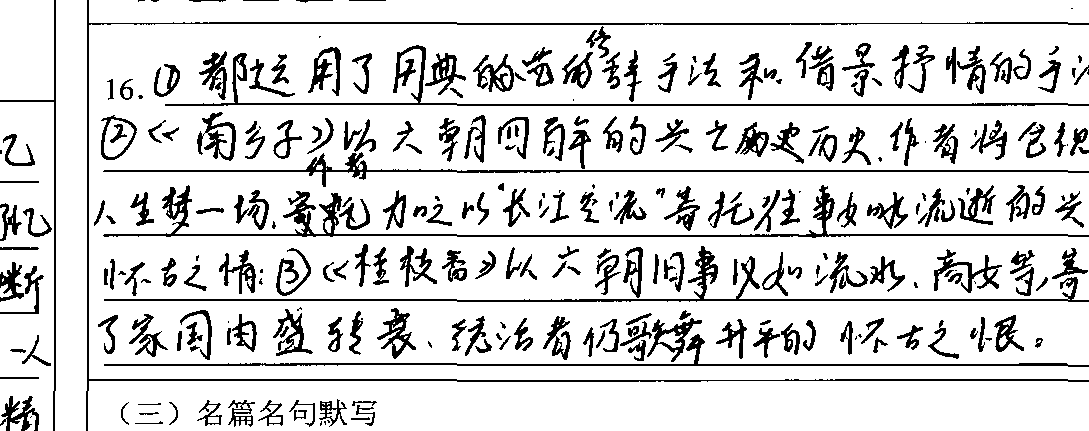 16.① 都运用了用典的修辞手法和借景抒情的手法
②《南乡子》以六朝四百年的兴亡历史,作者将它视
人生梦一场,作者以"长江空流"寄托往事如水流逝的兴
怀古之情;③《桂枝香》以六朝旧事以如流水、商女等,寄
了家国由盛转衰、统治者仍歌舞升平的怀古之恨。
(三)名篇名句默写
断
一人
精